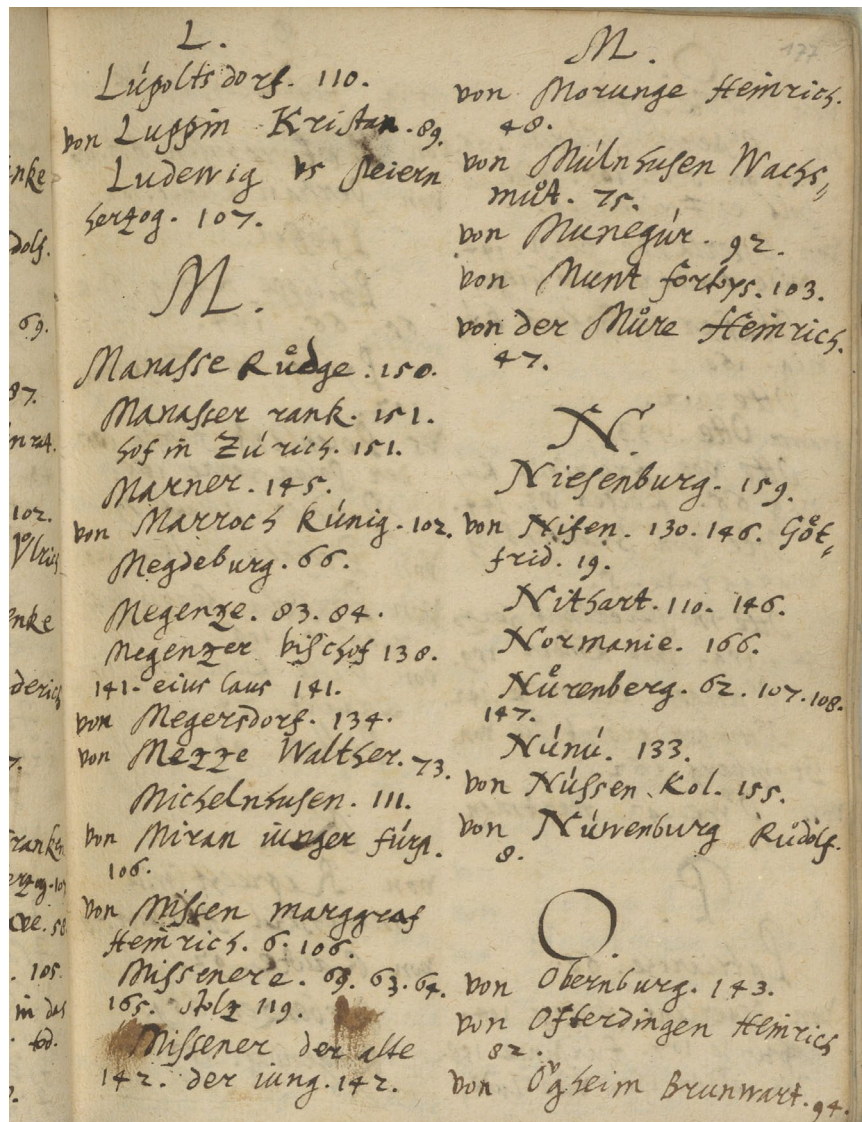 177
L.
Lúpoltsdorf. 110.
von Luppin Kristan. 89.
Ludewig vs Peiern
hertzog. 107.
M.
Manasse Ruͦdge. 150.
Manasser rank. 151.
hof in Zúrich. 151.
Marner. 145.
von Marroch kúnig. 102.
Megdeburg. 66.
Megenze. 83. 84.
Megenzer bischof 138.
141. eius laus 141.
von Megersdorf. 134.
von Mezze Walther. 73.
Michelnhusen. 111.
von Miran iunger fúrst.
106.
von Missen marggraf
Heinrich. 6. 106.
Missenere. 69. 63. 64.
165. stolz 119.
Missener der alte
142. der iung. 142.
M.
von Morunge Heinrich.
48.
von Múlnhusen Wachs-
muͦt. 75.
von Munegúr. 92.
von Munt fortys. 103.
von der Muͦre Heinrich.
47.
N.
Niefenburg. 159.
von Nifen. 130. 146. Goͤt-
frid. 19.
Nithart. 110. 146.
Normanie. 166.
Nuͤrenberg. 62. 107. 108.
147.
Núnú. 133.
von Nússen. Kol. 155.
von Núwenburg Ruͦdolf.
8.
O.
von Obernburg. 143.
von Ofterdingen Heinrich
82.
von Oͮgheim Brunwart. 94.